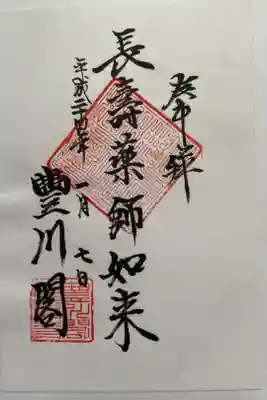 奉拝
長壽薬師如来
平成二十四年 一月 七日
豊川閣